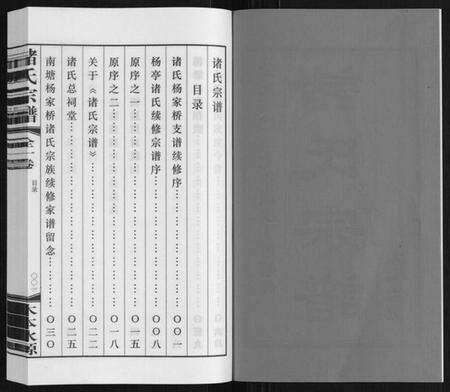 诸氏宗谱
目录
诸氏杨家桥支谱续修序……〇〇一
杨亭诸氏续修宗谱序……〇〇八
原序之一……〇一五
原序之二……〇一八
关于《诸氏宗谱》……〇二二
诸氏总祠堂……〇二五
南塘杨家桥诸氏宗族续修家谱留念……〇三〇
诸氏宗谱
全一卷
目录
木本水源